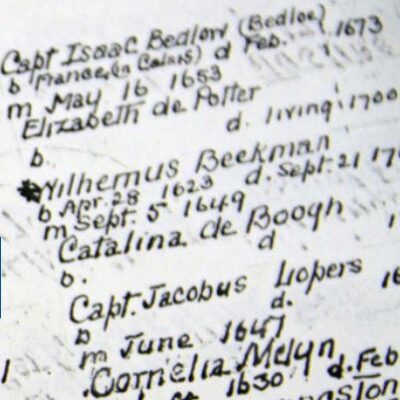 Capt Isaac Bedlow (Bedloe)
b France (in Calais) d Feb. 1673
m May 16 1653
Elizabeth de Potter
b. d. living 1700
Wilhemus Beekman
b Apr. 28 1623 d. Sept. 21
m Sept. 5 1649
Catalina de Boogh
b. d
Capt. Jacobus Lopers
b d.
m June 1647
Cornelia Melyn
1630 d. Feb